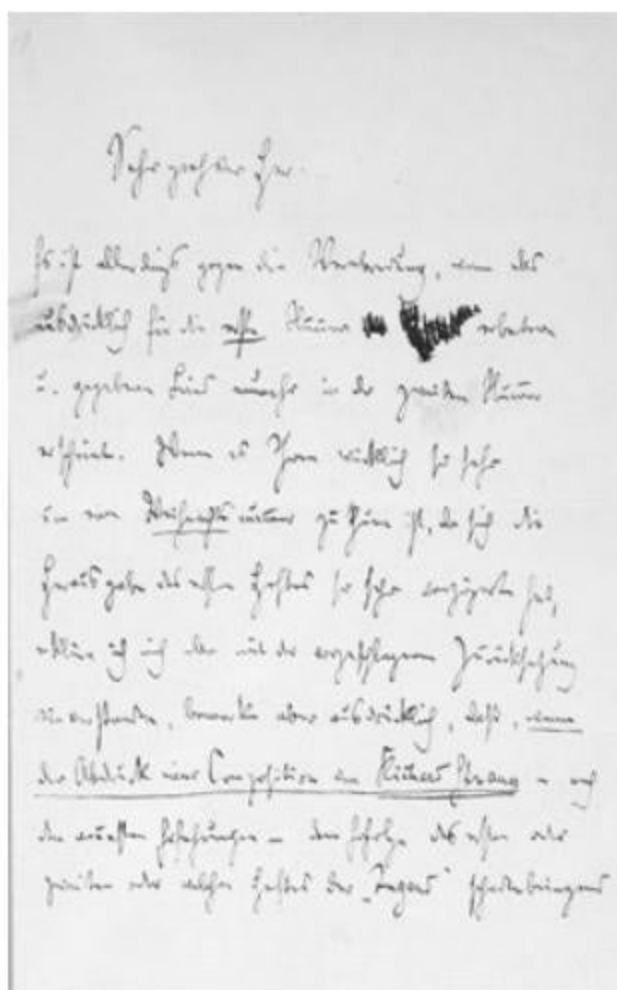 Sehr geehrter Herr
Es ist allerdings gegen die Verabredung, wenn das
ausdrücklich für die erste Nummer erbetene
u. gegebene Lied nunmehr in der zweiten Nummer
erscheint. Wenn es Ihnen wirklich so sehr
um eine Weihnachtsnummer zu thun ist, da sich die
Herausgabe des ersten Heftes so sehr verzögerte hat,
erkläre ich mich aber mit der vorgeschlagenen Zurücksetzung
einverstanden, bemerke aber ausdrücklich, daß, wenn
der Abdruck einer Composition von Richard Strauss – nach
den neuesten Erfahrungen – dem Erfolge des ersten oder
zweiten oder welchen Heftes der „Jugend“ schadenbringend